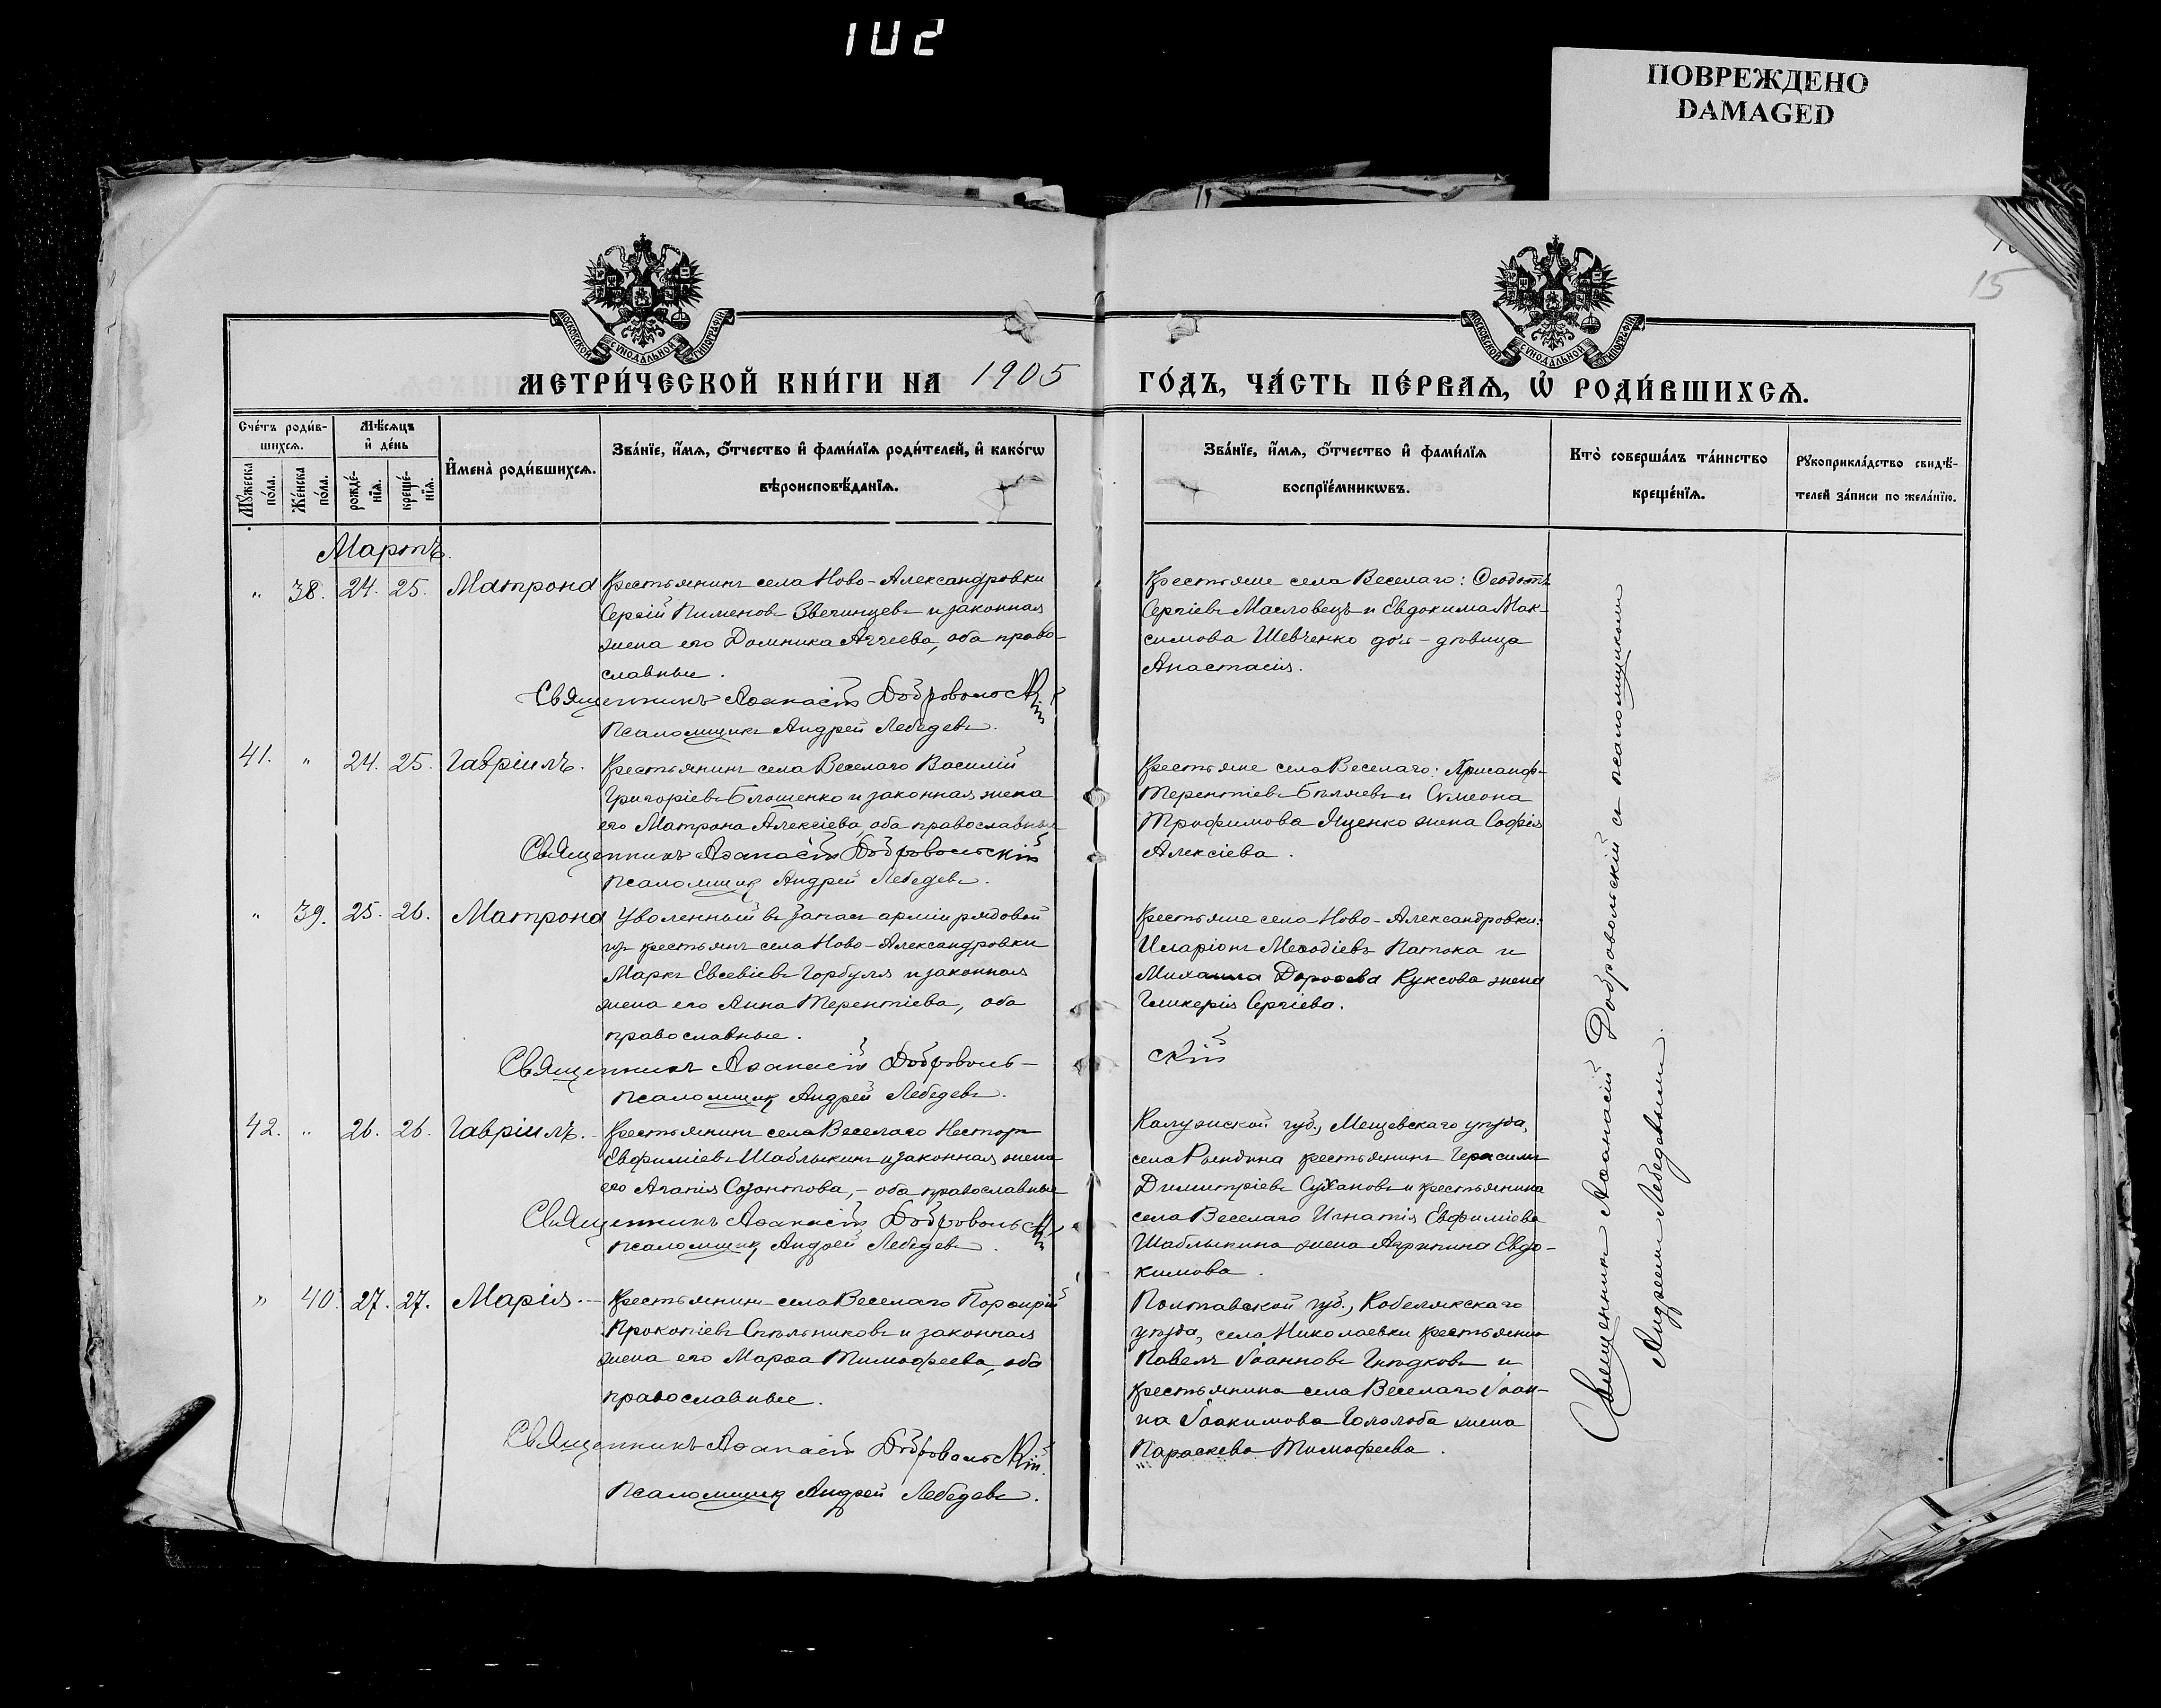 102
ПОВРЕЖДЕНО
DAMAGED
15
МОСКОВСКОЙ СѴНОДАЛЬНОЙ ТИПОГРАФІИ
МОСКОВСКОЙ СѴНОДАЛЬНОЙ ТИПОГРАФІИ
МЕТРИ́ЧЕСКОЙ КНИ́ГИ НА 1905
ГО́ДЪ, ЧА́СТЬ ПЕ́РВАѦ, Ѡ҆ РОДИ́ВШИХСѦ.
Сче́тъ роди́в-
шихсѧ.
Мꙋ́жеска по́ла.
Же́нска по́ла.
Мѣ́сѧцъ
и҆ де́нь
рожде́-
нїѧ.
креще́-
нїѧ.
И҆мена̀ роди́вшихсѧ.
Зва́нїе, и҆́мѧ, ѻ҆́тчество и҆ фами́лїѧ роди́телей, и҆ како́гѡ
вѣроисповѣ́данїѧ.
Зва́нїе, и҆́мѧ, ѻ҆́тчество и҆ фами́лїѧ
воспрїе́мникѡвъ.
Кто̀ соверша́лъ та́инство
креще́нїѧ.
Рꙋкоприкла́дство свидѣ́-
телей за́писи по жела́нїю.
Мартъ.
" 38. 24. 25. Матрона
Крестьянинъ села Ново-Александровки
Сергій Пименовъ Звегинцевъ и законная
жена его Домника Аггеева, оба право-
славные.
Священникъ Аѳанасій Добровольскій
Псаломщикъ Андрей Лебедевъ.
Крестьяне села Веселаго: Ѳеодотъ
Сергіевъ Масловецъ и Евдокима Мак-
симова Шевченко дочь - дѣвица
Анастасія.
41. " 24. 25. Гавріилъ.
Крестьянинъ села Веселаго Василій
Григоріевъ Блошенко и законная жена
его Матрона Алексіева, оба православные
Священникъ Аѳанасій Добровольскій
Псаломщикъ Андрей Лебедевъ.
Крестьяне села Веселаго: Хрисанфъ
Терентіевъ Бѣляевъ и Сѵмеона
Трофимова Яценко жена Софія
Алексіева.
" 39. 25. 26. Матрона
Уволенный въ запасъ арміи рядовой
изъ крестьянъ села Ново-Александровки
Маркъ Евсевіевъ Горбуля и законная
жена его Анна Терентіева, оба
православные.
Священникъ Аѳанасій Доброволь-
скій
Псаломщикъ Андрей Лебедевъ.
Крестьяне села Ново-Александровки:
Иларіонъ Меѳодіевъ Патока и
Михаила Дороѳева Куксова жена
Гликерія Сергіева.
42. " 26. 26. Гавріилъ.
Крестьянинъ села Веселаго Несторъ
Евфиміевъ Шаблыкинъ и законная жена
его Агапія Созонтова, - оба православные
Священникъ Аѳанасій Добровольскій
Псаломщикъ Андрей Лебедевъ.
Калужской губ., Мещевскаго уѣзда,
села крестьянинъ Герасимъ
Димитріевъ Сухановъ и крестьянина
села Веселаго Игнатія Евфиміева
Шаблыкина жена Агрипина Евдо-
кимова.
" 40. 27. 27. Марія.
Крестьянинъ села Веселаго Порфирій
Прокопіевъ Стѣльниковъ и законная
жена его Марѳа Тимофеева, оба
православные.
Священникъ Аѳанасій Добровольскій.
Псаломщикъ Андрей Лебедевъ.
Полтавской губ., Кобелякскаго
уѣзда, села Николаевки крестьянинъ
Павелъ Іоанновъ Гнѣдковъ и
крестьянина села Веселаго Іоан-
на Іоакимова Гололоба жена
Параскева Тимофеева.
Священникъ Аѳанасій Добровольскій съ псаломщикомъ
Андреемъ Лебедевымъ.